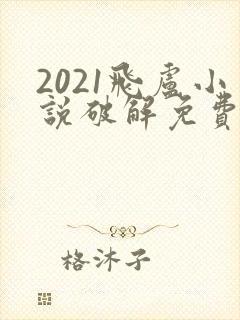 2021飛盧小
說破解免費
格沐子